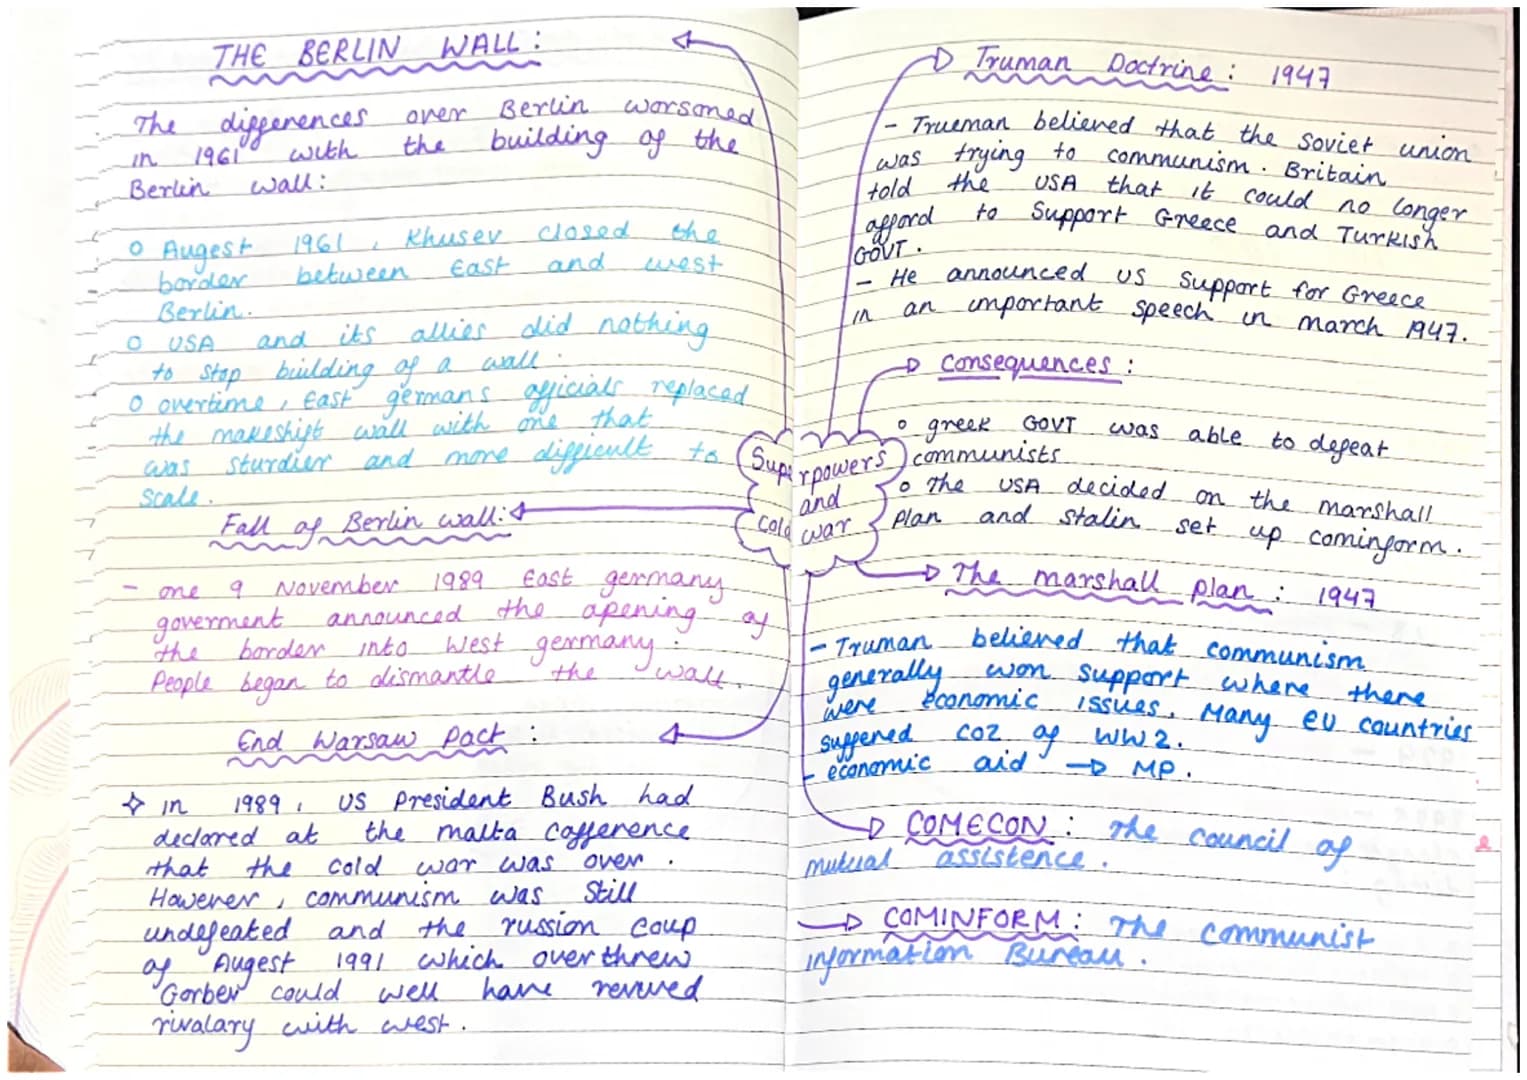 THE BERLIN WALL:
The differences over Berlin worsoned
in 1961 with the building of the
Berlin wall:
o Augest 1961, Khusev closed the
border between East and west
Berlin.
o USA and its allies did nothing
to stop building of a wall.
o overtime, East germans officials replaced
the makeshift wall with one that
was sturdier and more difficult to
scale.
Fall of Berlin wall:
- one 9 November 1989 East germany
goverment announced the opening of
the border into West germany.
People began to dismantle the wall.
End Warsaw Pact:
In 1989, US President Bush had
declared at the malta cofference
that the cold war was over.
However, communism was still
undefeated and the russion coup
of Augest 1991 which overthrew
Gorbev could well have revived
rivalary with west.
Superpowers
and
cold war
Truman Doctrine: 1947
- Trueman believed that the Soviet union
was trying to communism. Britain
told the USA that it could no longer
afford to Support Greece and Turkish
GOVT.
- He announced US Support for Greece
in an important speech in march 1947.
Consequences:
o greek GOVT was able to defeat
communists
o The USA decided on the marshall
Plan and Stalin set up cominform.
The marshall plan: 1947
- Truman believed that communism
generally won support where there
were economic issues. Many EU countries
suffered coz of WW2.
- economic aid → MP.
COMECON: The council of
mutual assistence.
→ COMINFORM: The communist
information Bureau.